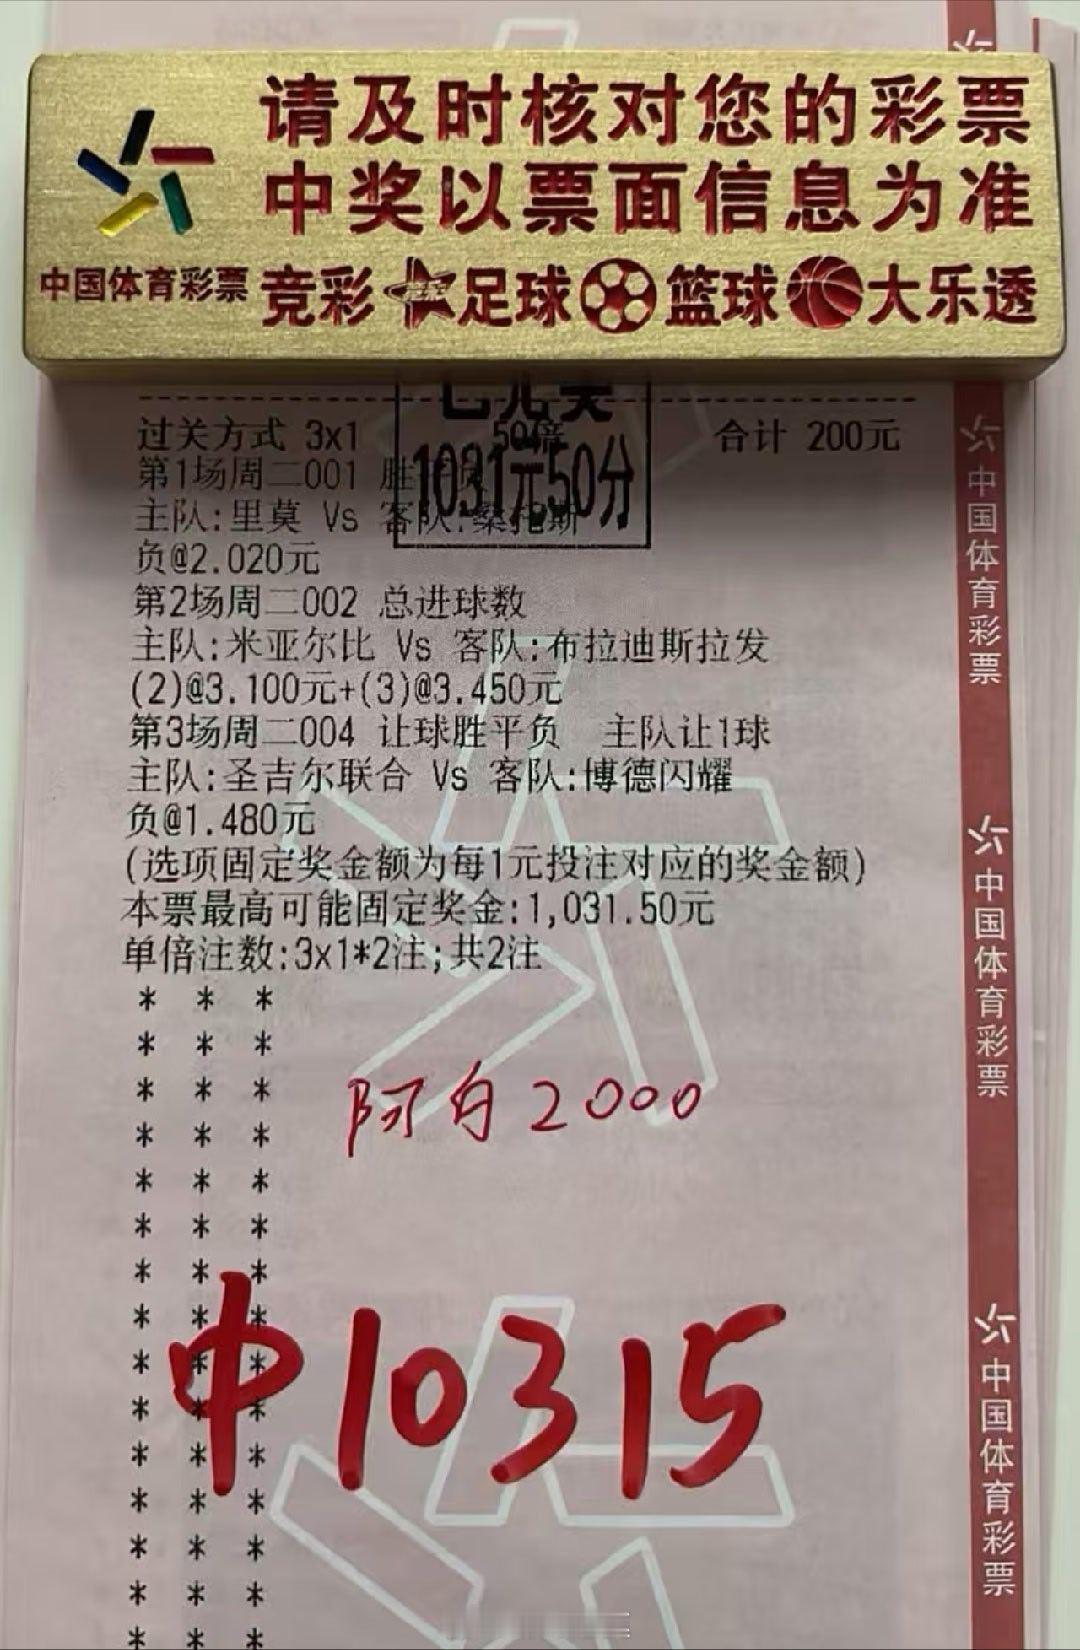 请及时核对您的彩票
中奖以票面信息为准
中国体育彩票 竞彩 足球 篮球 大乐透
过关方式 3x1 50倍 合计 200元
1031元50分
第1场周二001 胜
主队:里莫 Vs 客队:桑托斯
负@2.020元
第2场周二002 总进球数
主队:米亚尔比 Vs 客队:布拉迪斯拉发
(2)@3.100元+(3)@3.450元
第3场周二004 让球胜平负 主队让1球
主队:圣吉尔联合 Vs 客队:博德闪耀
负@1.480元
(选项固定奖金额为每1元投注对应的奖金额)
本票最高可能固定奖金:1,031.50元
单倍注数:3x1*2注;共2注
阿白2000
中10315
中国体育彩票
中国体育彩票
中国体育彩票